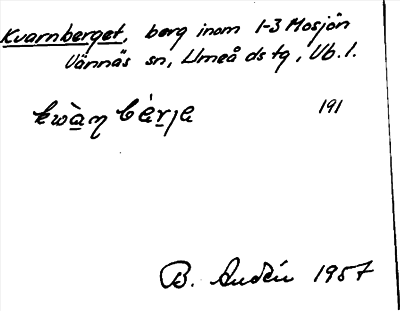 Kvarnberget, berg inom 1-3 Mosjön
Vännäs sn, Umeå ds tg, Vb. l.
kwàṇ bèrja 191
B. Audén 1957